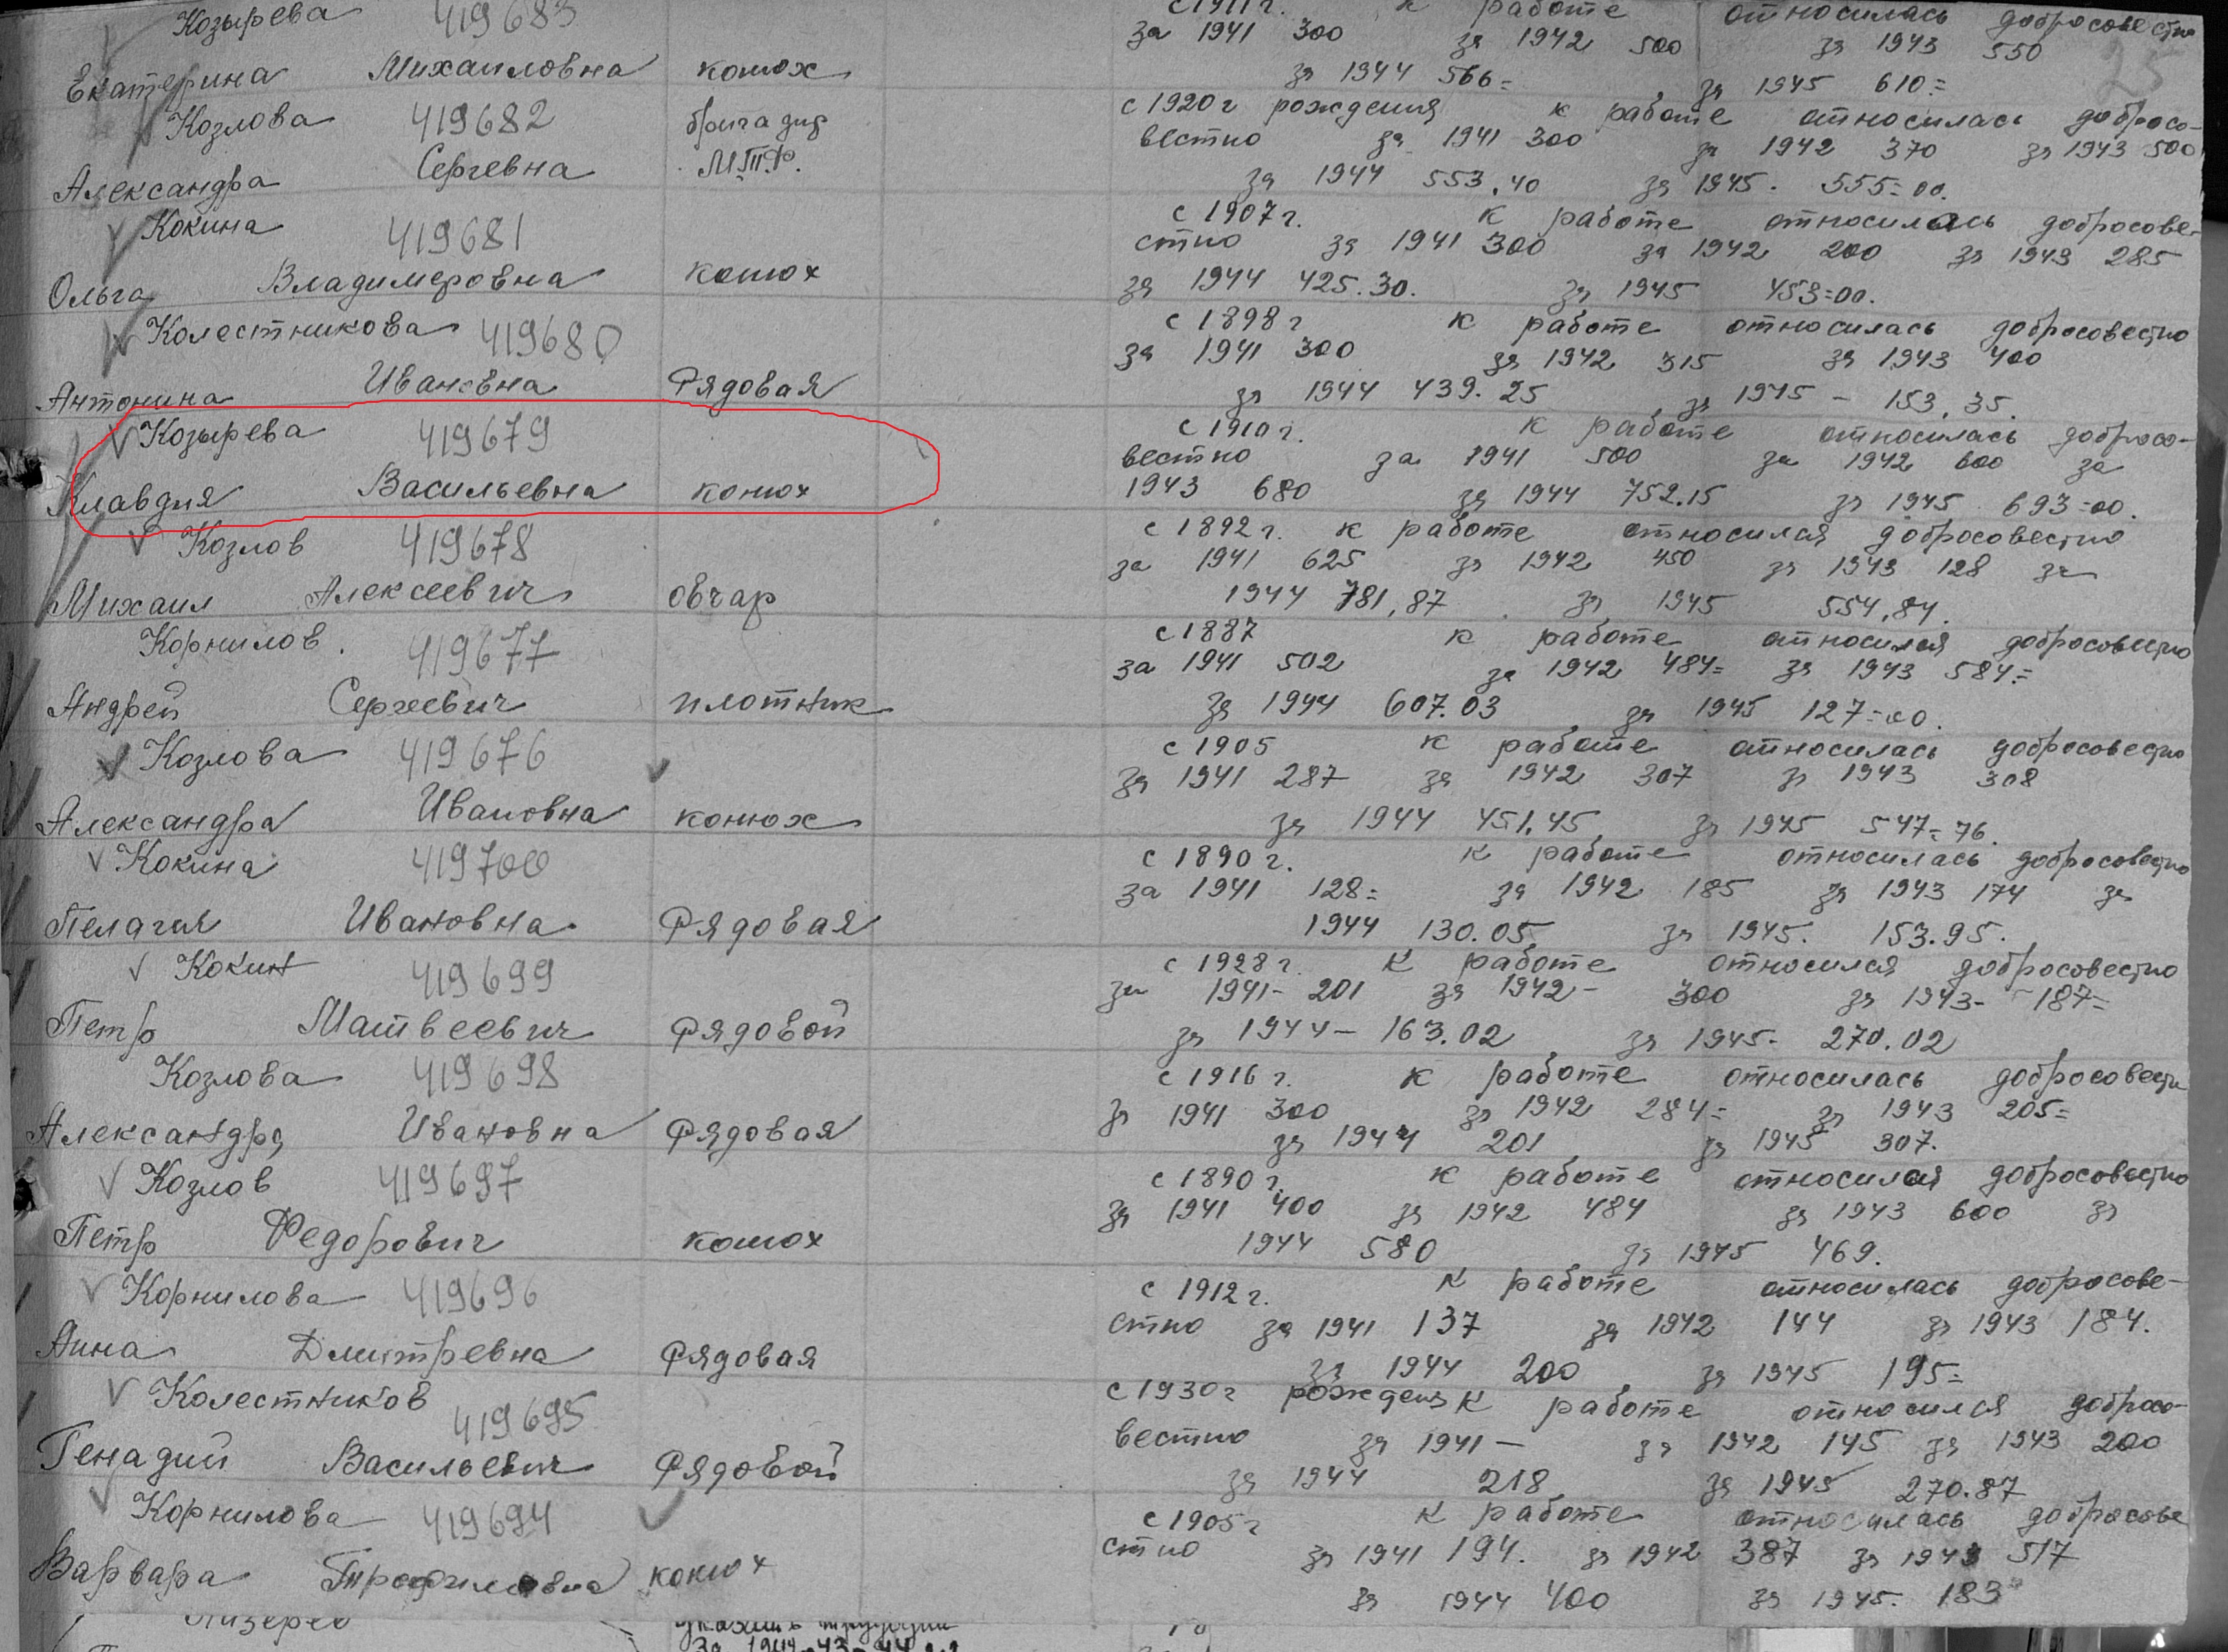 Козырева 419683 с 1911 г. к работе относилась добросовестно
за 1941 300 за 1942 500 за 1943 550
25
Екатерина Михаиловна конюх за 1944 566= за 1945 610=
Козлова 419682 бригадир с 1920 г рождения к работе относилась добросо-
вестно за 1941 300 за 1942 370 за 1943 500
Александра Сергевна М.Т.Ф. за 1944 553,40 за 1945. 555=00.
Кокина 419681 с 1907 г. к работе относилась добросове-
стно за 1941 300 за 1942 200 за 1943 285
Ольга Владимеровна конюх за 1944 425.30. за 1945 453=00.
Колестникова 419680 с 1898 г к работе относилась добросовестно
за 1941 300 за 1942 315 за 1943 400
Антонина Ивановна Рядовая за 1944 439.25 за 1945 – 153,35.
Козырева 419679 с 1910 г. к работе относилась добросо-
вестно за 1941 500 за 1942 600 за
Клавдия Васильевна конюх 1943 680 за 1944 752.15 за 1945 693=00.
Козлов 419678 с 1892 г. к работе относился добросовестно
за 1941 625 за 1942 450 за 1943 128 за
Михаил Алексеевич овчар 1944 781,87 за 1945 554,84.
Корнилов. 419677 с 1887 к работе относился добросовестно
за 1941 502 за 1942 484= за 1943 584=
Андрей Сергеевич плотник за 1944 607.03 за 1945 127=00.
Козлова 419676 с 1905 к работе относилась добросовестно
за 1941 287 за 1942 307 за 1943 308
Александра Ивановна конюх за 1944 451,45 за 1945 547=76.
Кокина 419700 с 1890 г. к работе относилась добросовестно
за 1941 128= за 1942 185 за 1943 174 за
Пелагия Ивановна Рядовая 1944 130.05 за 1945. 153.95.
Кокин 419699 с 1928 г. к работе относился добросовестно
за 1941- 201 за 1942- 300 за 1943- 187=
Петр Матвеевич Рядовой за 1944- 163.02 за 1945- 270.02
Козлова 419698 с 1916 г. к работе относилась добросовестн
за 1941 300 за 1942 284= за 1943 205=
Александра Ивановна Рядовая за 1944 201 за 1945 307.
Козлов 419697 с 1890 г. к работе относился добросовестно
за 1941 400 за 1942 484 за 1943 600 за
Петр Федорович конюх 1944 580 за 1945 469.
Корнилова 419696 с 1912 г. к работе относилась добросове-
стно за 1941 137 за 1942 144 за 1943 184.
Анна Дмитревна Рядовая за 1944 200 за 1945 195=
Колестников 419695 с 1930 г рождения к работе относился добросо-
вестно за 1941 – за 1942 145 за 1943 200
Генадий Васильевич Рядовой за 1944 218 за 1945 270.87
Корнилова 419694 с 1905 г к работе относилась добросове
стно за 1941 194. за 1942 387 за 1943 517
Варвара конюх за 1944 400 за 1945. 183